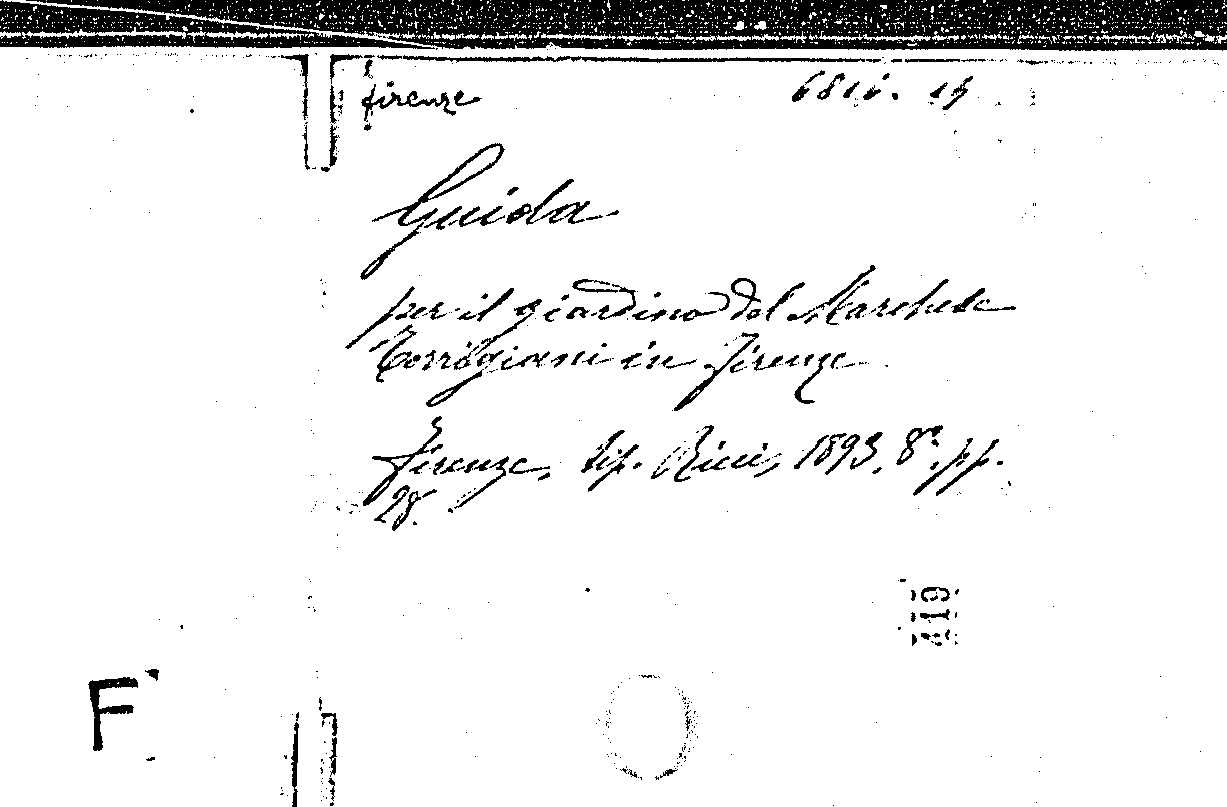 firenze
Guida
per il giardino del Marchese
Torrigiani in Firenze
Firenze, tip. Ricci, 1893, 8°, pp.
28.
419
F